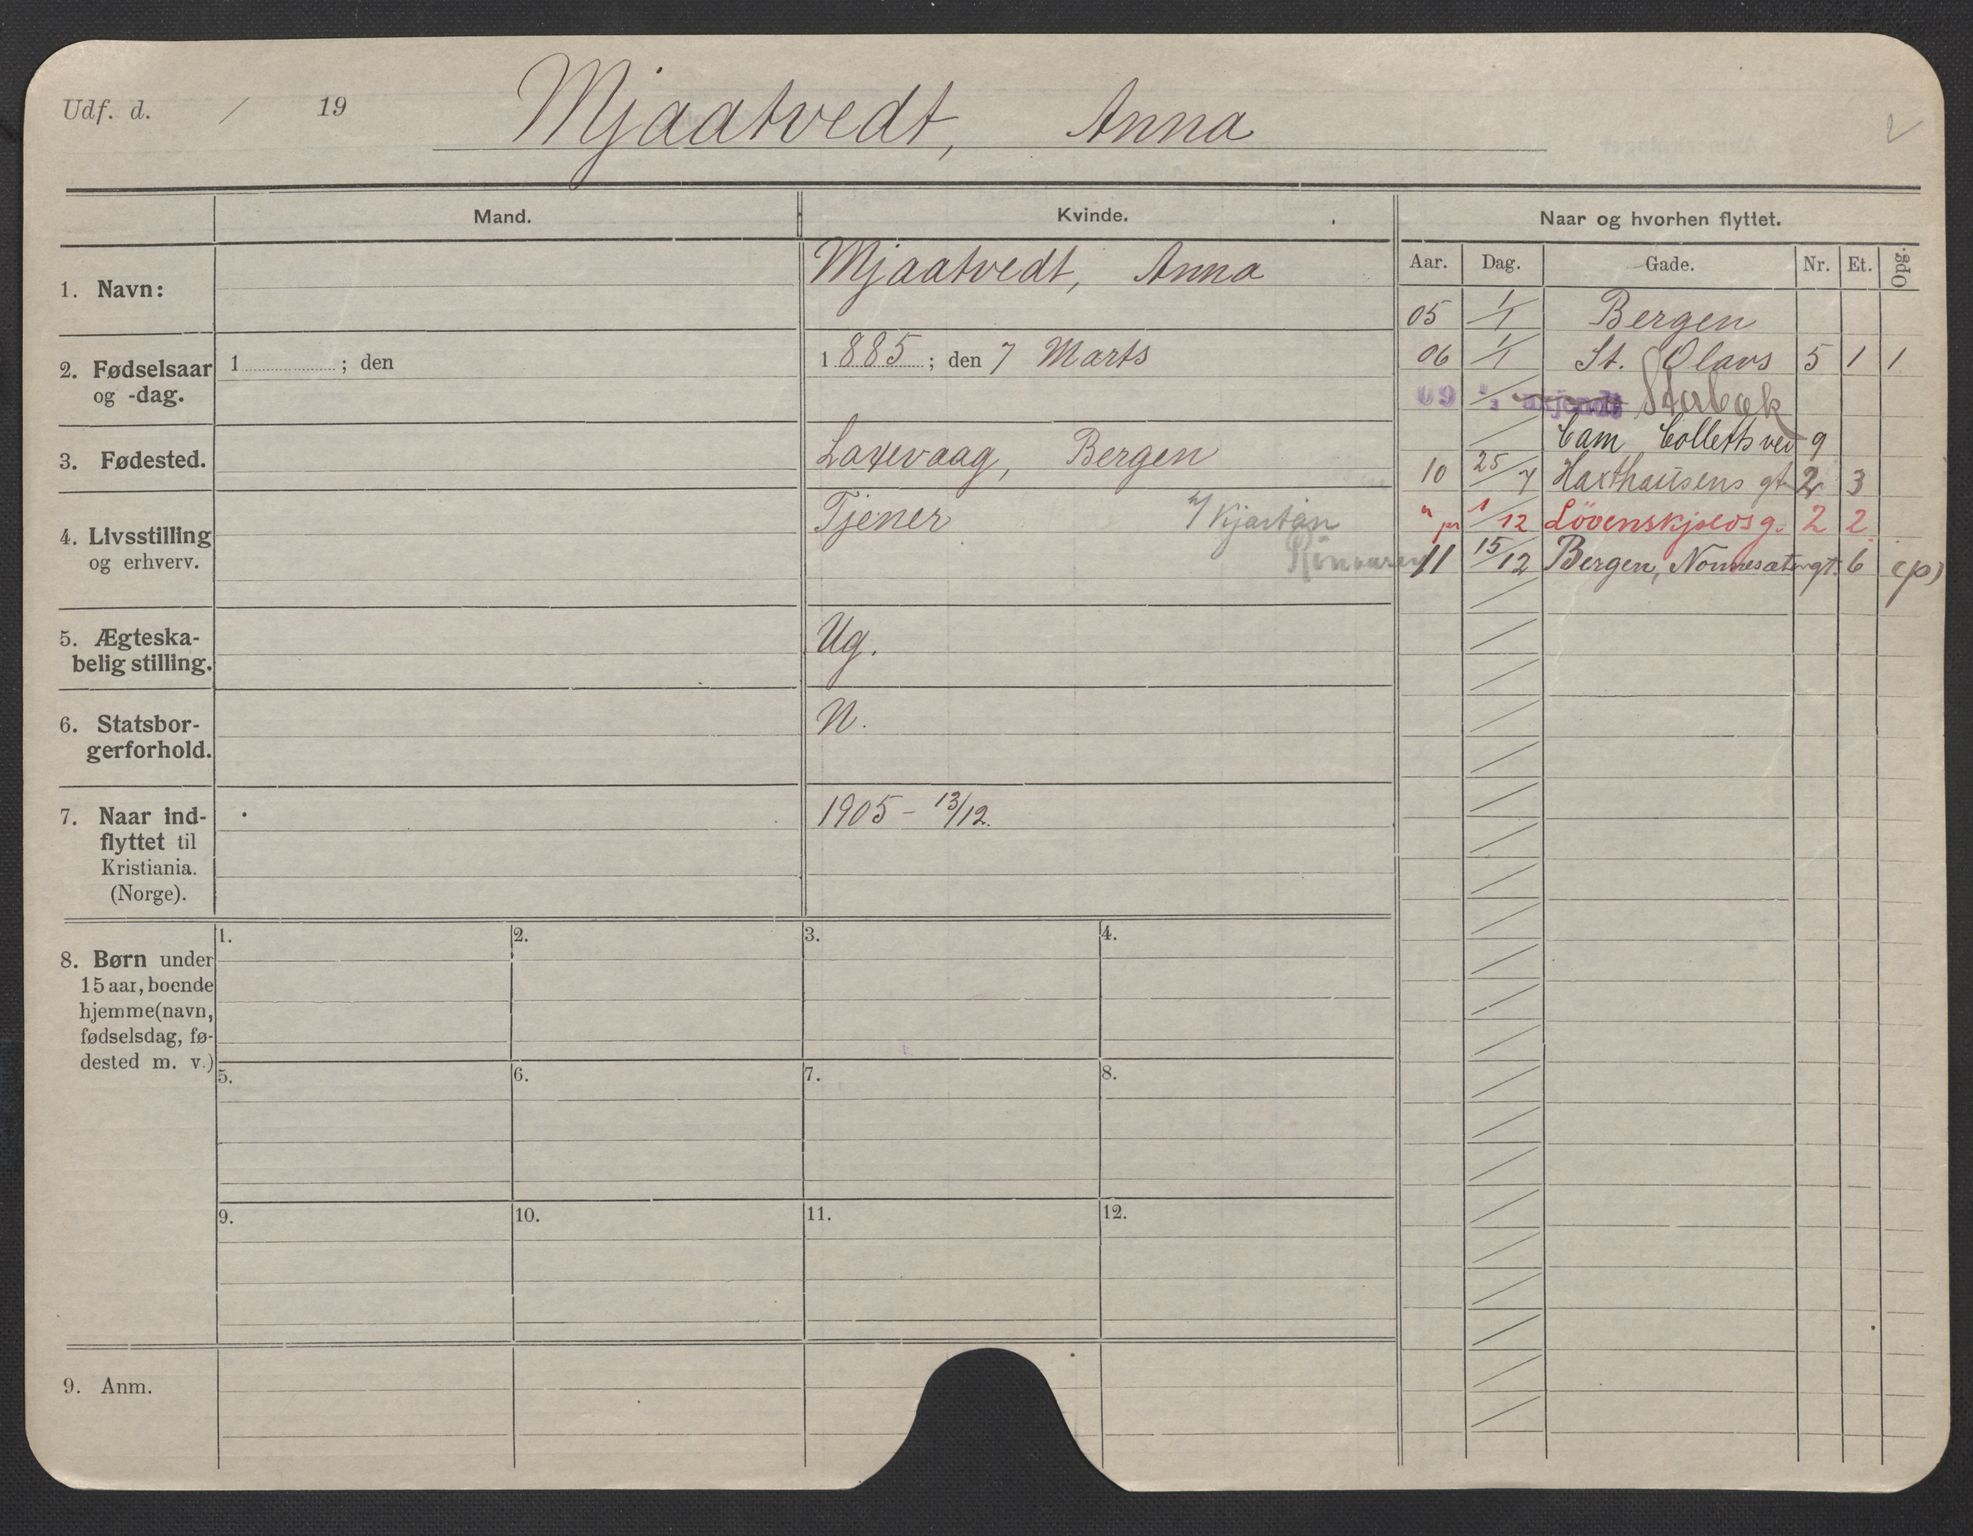 Udf. d. / 19
Mjaatvedt, Anna
Mand. Kvinde. Naar og hvorhen flyttet.
Aar. Dag. Gade. Nr. Et. Opg.
1. Navn: Mjaatvedt, Anna
2. Fødselsaar og -dag.
1 ; den
1885; den 7 Marts
3. Fødested. Laxevaag, Bergen
4. Livsstilling og erhverv. Tjener
h/ Kjartan
5. Ægteska-
belig stilling. Ug.
6. Statsbor-
gerforhold. N.
7. Naar ind-
flyttet til
Kristiania.
(Norge).
1905 - 13/12.
05 1/1 Bergen
06 1/1 St. Olavs 5 1 1
09 ukjendt Stabæk
Cam Colletts vei 9
10 25/7 Haxthausens gt. 2 3
" 1/12 Løvenskjolds g. 2 2
11 15/12 Bergen, Nonnesætergt. 6 (p)
8. Børn under
15 aar, boende
hjemme (navn,
fødselsdag, fø-
dested m. v.)
1. 2. 3. 4.
5. 6. 7. 8.
9. 10. 11. 12.
9. Anm.